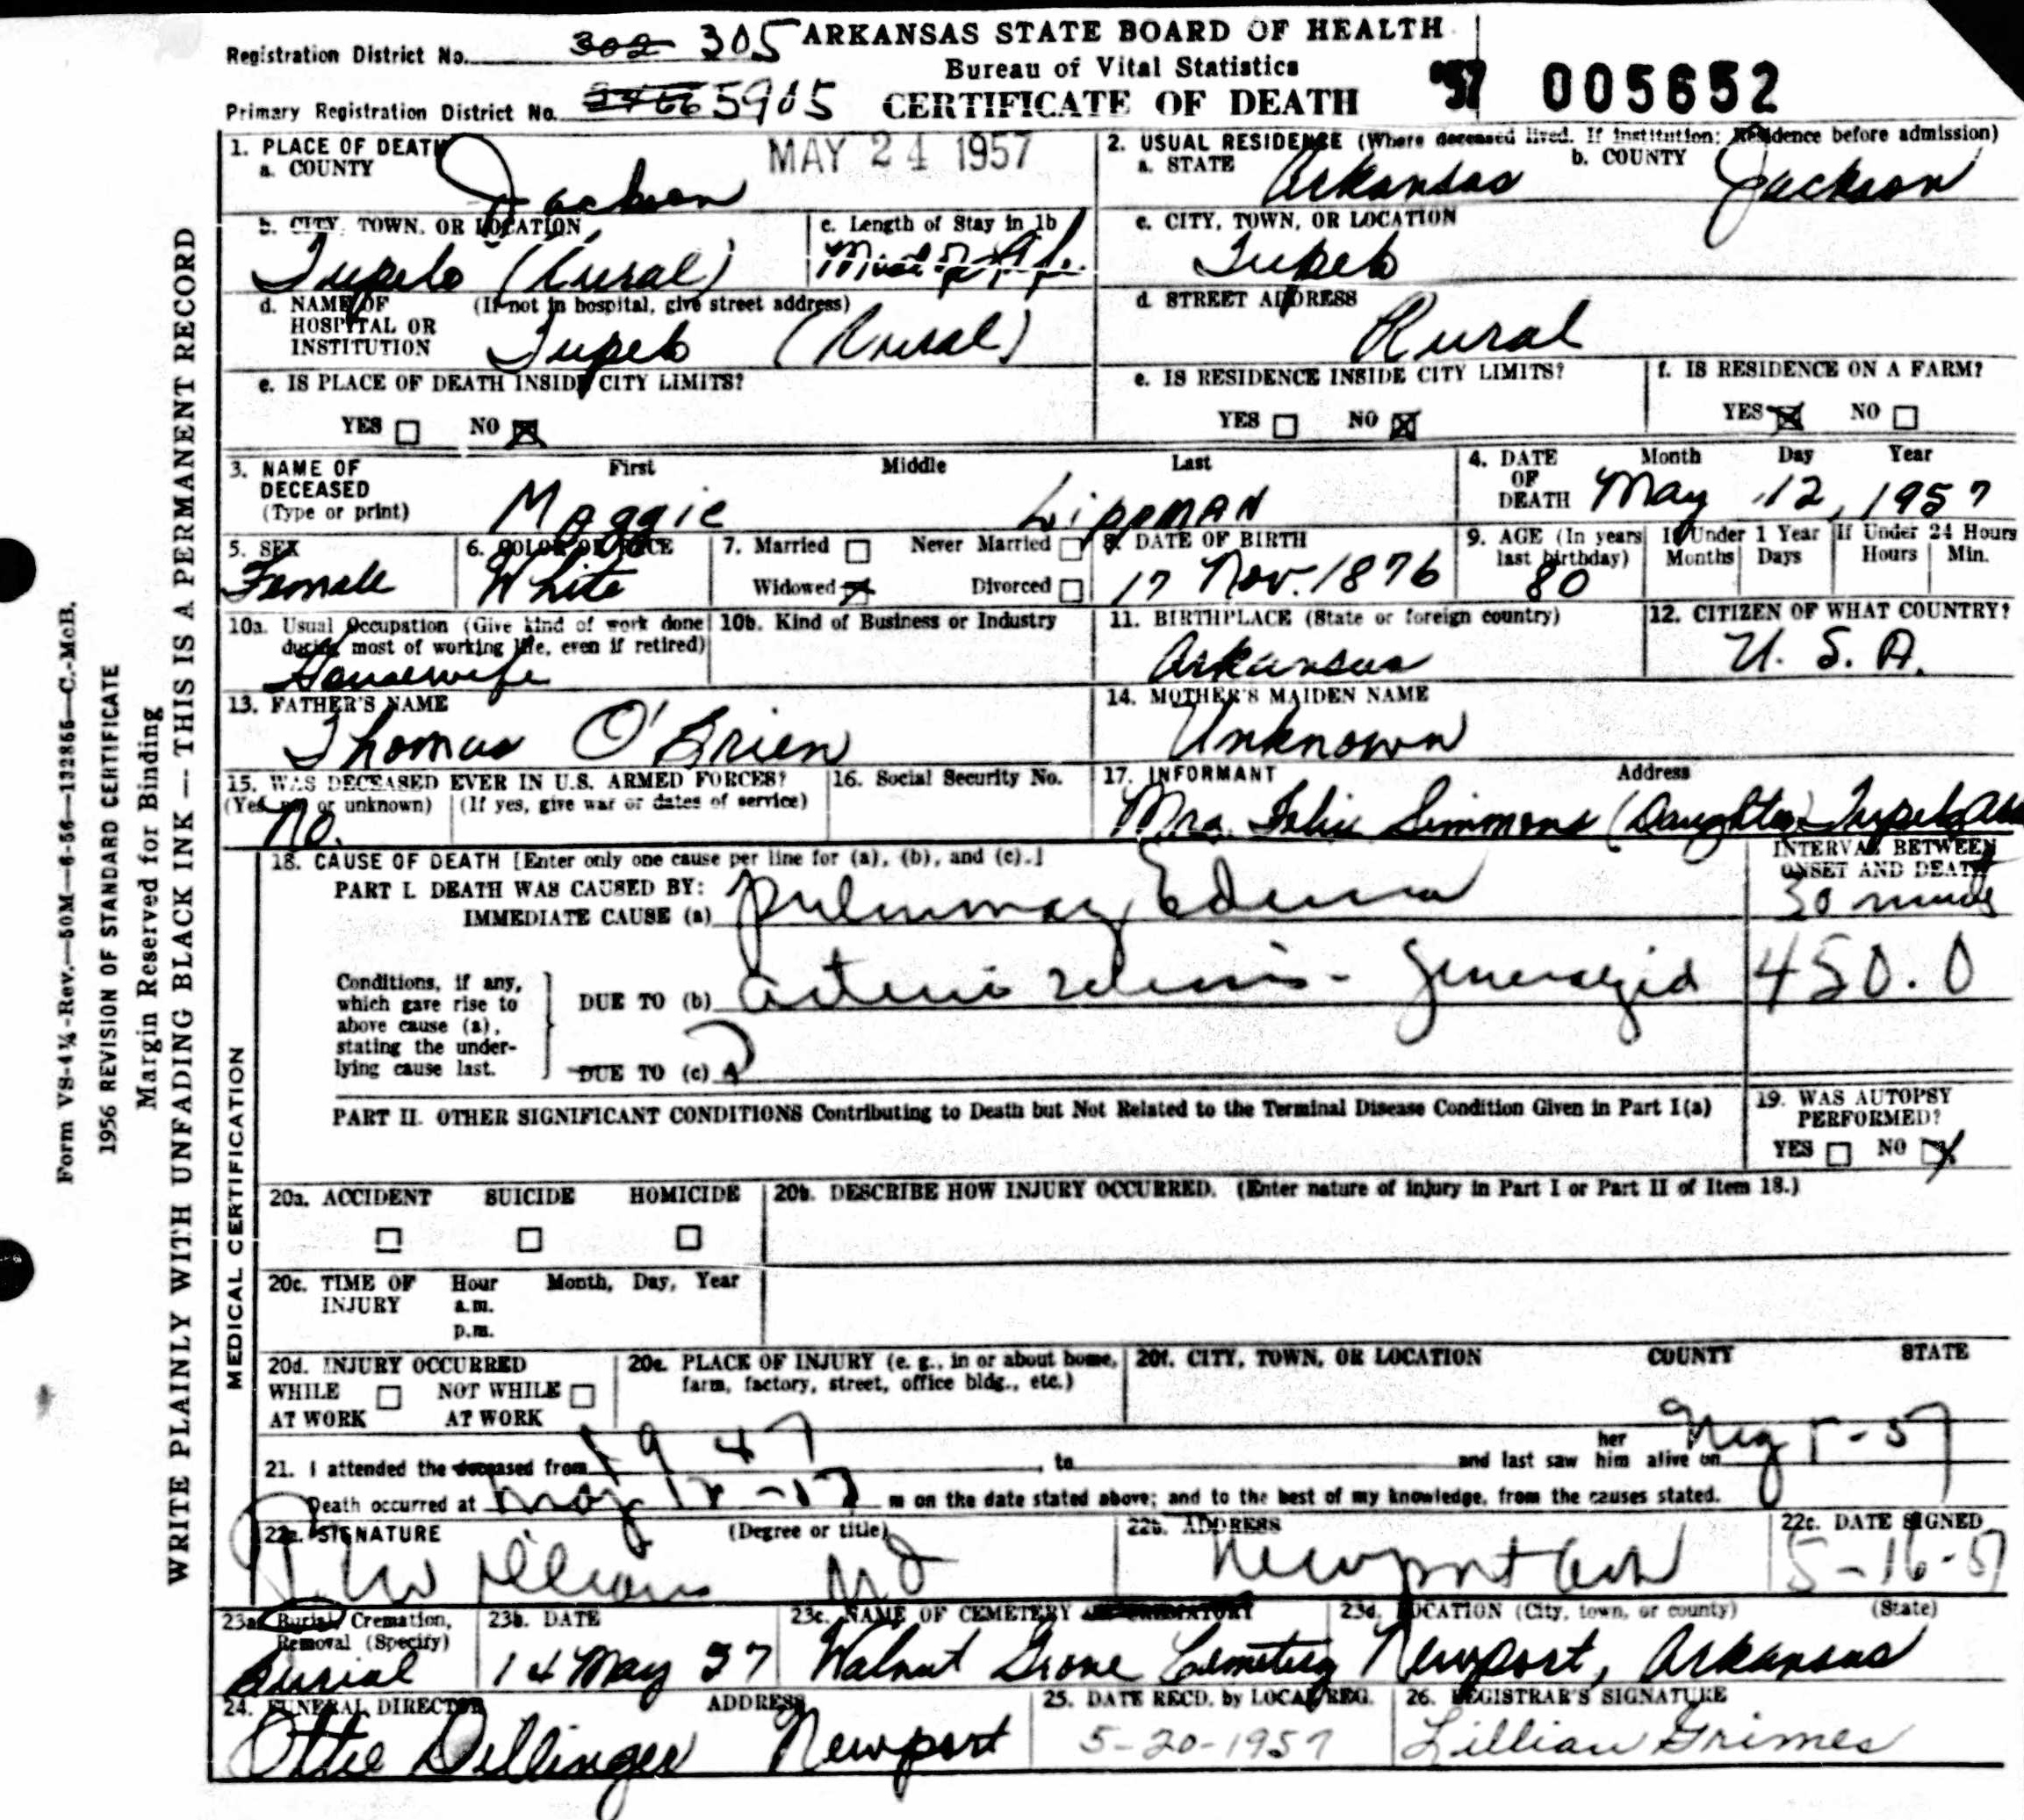 Registration District No. 302 305 ARKANSAS STATE BOARD OF HEALTH
Bureau of Vital Statistics
Primary Registration District No. 5905 CERTIFICATE OF DEATH '57 005652
1. PLACE OF DEATH MAY 24 1957
a. COUNTY Jackson
2. USUAL RESIDENCE (Where deceased lived. If institution: Residence before admission)
a. STATE Arkansas b. COUNTY Jackson
b. CITY, TOWN, OR LOCATION Tupelo (Rural)
c. Length of Stay in 1b Most of life
c. CITY, TOWN, OR LOCATION Tupelo
d. NAME OF HOSPITAL OR INSTITUTION (If not in hospital, give street address) Tupelo (Rural)
d. STREET ADDRESS Rural
e. IS PLACE OF DEATH INSIDE CITY LIMITS?
YES NO
e. IS RESIDENCE INSIDE CITY LIMITS?
YES NO
f. IS RESIDENCE ON A FARM?
YES NO
3. NAME OF DECEASED (Type or print) First Middle Last
Maggie Lippman
4. DATE OF DEATH Month Day Year
May 12, 1957
5. SEX Female
6. COLOR OR RACE White
7. Married Never Married
Widowed Divorced
8. DATE OF BIRTH 17 Nov. 1876
9. AGE (In years last birthday) 80
If Under 1 Year Months Days
If Under 24 Hours Hours Min.
10a. Usual Occupation (Give kind of work done during most of working life, even if retired)
Housewife
10b. Kind of Business or Industry
11. BIRTHPLACE (State or foreign country) Arkansas
12. CITIZEN OF WHAT COUNTRY? U. S. A.
13. FATHER'S NAME Thomas O'Brien
14. MOTHER'S MAIDEN NAME Unknown
15. WAS DECEASED EVER IN U.S. ARMED FORCES?
(Yes, no, or unknown) (If yes, give war or dates of service)
no.
16. Social Security No.
17. INFORMANT Address
Mrs. Simmons (Daughter) Tupelo Ark
18. CAUSE OF DEATH [Enter only one cause per line for (a), (b), and (c).]
INTERVAL BETWEEN ONSET AND DEATH
PART I. DEATH WAS CAUSED BY:
IMMEDIATE CAUSE (a) Pulmonary Edema 30
Conditions, if any, which gave rise to above cause (a), stating the underlying cause last.
DUE TO (b) arterio sclerosis - generalized 450.0
DUE TO (c)
PART II. OTHER SIGNIFICANT CONDITIONS Contributing to Death but Not Related to the Terminal Disease Condition Given in Part I(a)
19. WAS AUTOPSY PERFORMED?
YES NO
20a. ACCIDENT SUICIDE HOMICIDE
20b. DESCRIBE HOW INJURY OCCURRED. (Enter nature of injury in Part I or Part II of Item 18.)
20c. TIME OF INJURY Hour Month, Day, Year
a.m.
p.m.
20d. INJURY OCCURRED
WHILE AT WORK NOT WHILE AT WORK
20e. PLACE OF INJURY (e. g., in or about home, farm, factory, street, office bldg., etc.)
20f. CITY, TOWN, OR LOCATION COUNTY STATE
21. I attended the deceased from 1947, to and last saw her him alive on
Death occurred at May m on the date stated above; and to the best of my knowledge, from the causes stated.
22a. SIGNATURE (Degree or title)
Williams MD
22b. ADDRESS Newport Ark
22c. DATE SIGNED 5-16-57
23a. Burial, Cremation, Removal (Specify) Burial
23b. DATE 14 May 57
23c. NAME OF CEMETERY OR CREMATORY Walnut Grove Cemetery
23d. LOCATION (City, town, or county) (State) Newport, Arkansas
24. FUNERAL DIRECTOR ADDRESS
Ottie Dillinger Newport
25. DATE RECD. by LOCAL REG. 5-20-1957
26. REGISTRAR'S SIGNATURE Lillian Grimes
MEDICAL CERTIFICATION
WRITE PLAINLY WITH UNFADING BLACK INK — THIS IS A PERMANENT RECORD
Margin Reserved for Binding
1956 REVISION OF STANDARD CERTIFICATE
Form VS-4¼-Rev.—50M—6-56—132865—C.-McB.